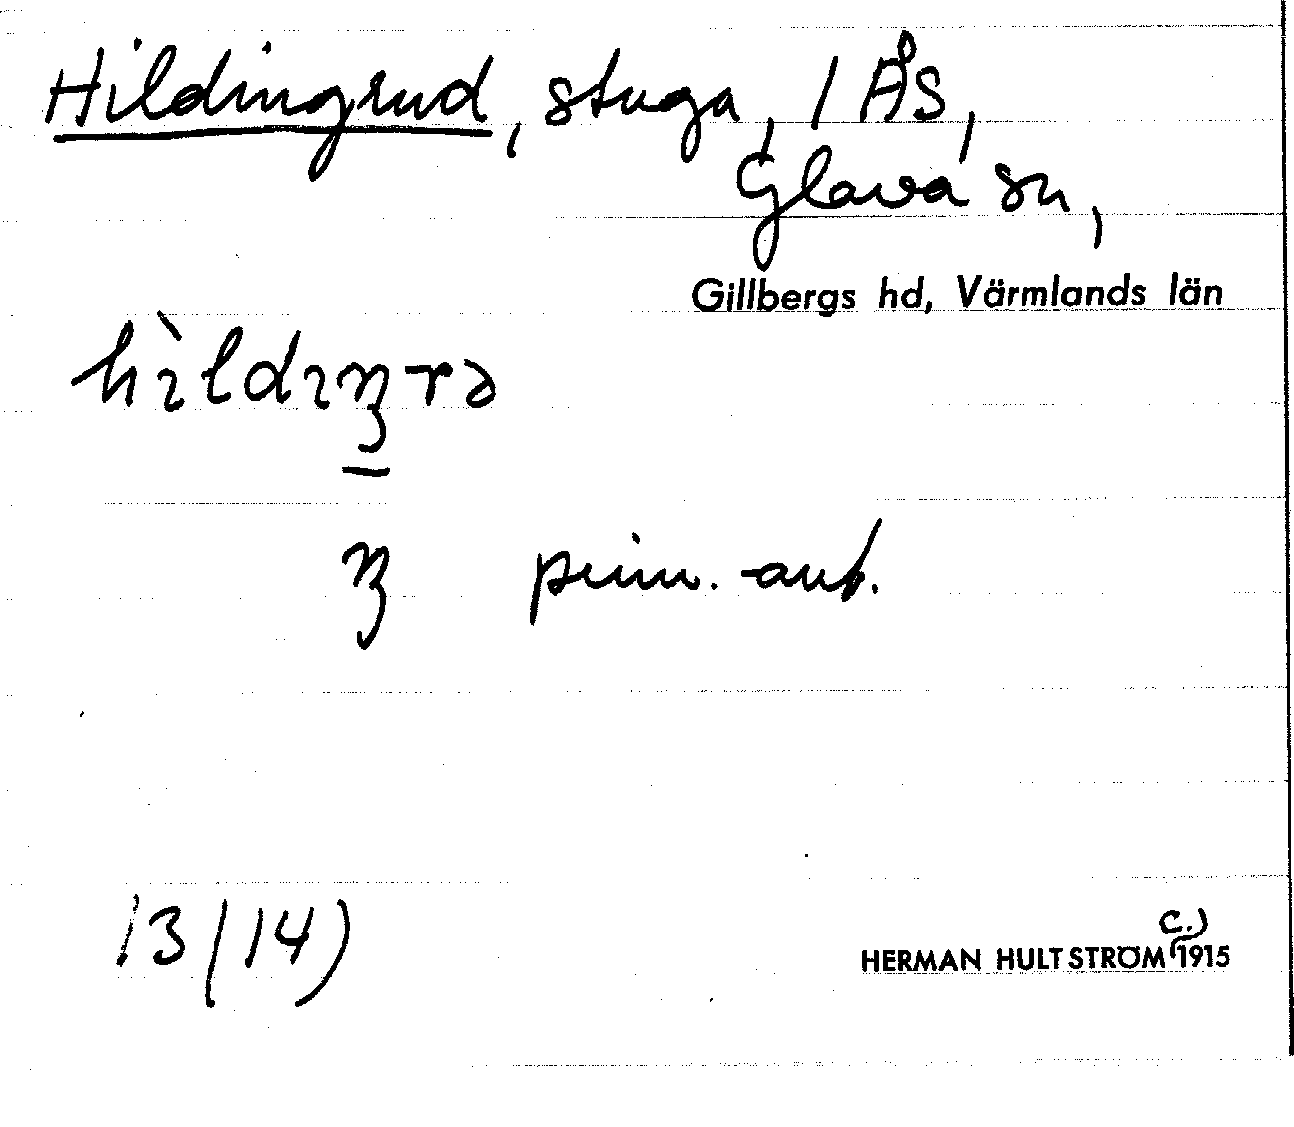 Hildingrud, stuga, / ÅS,
Glava sn,
Gillbergs hd, Värmlands län
hìldıŋrə
ŋ prim.-ant.
13(14)
C.)
HERMAN HULTSTRÖM 1915